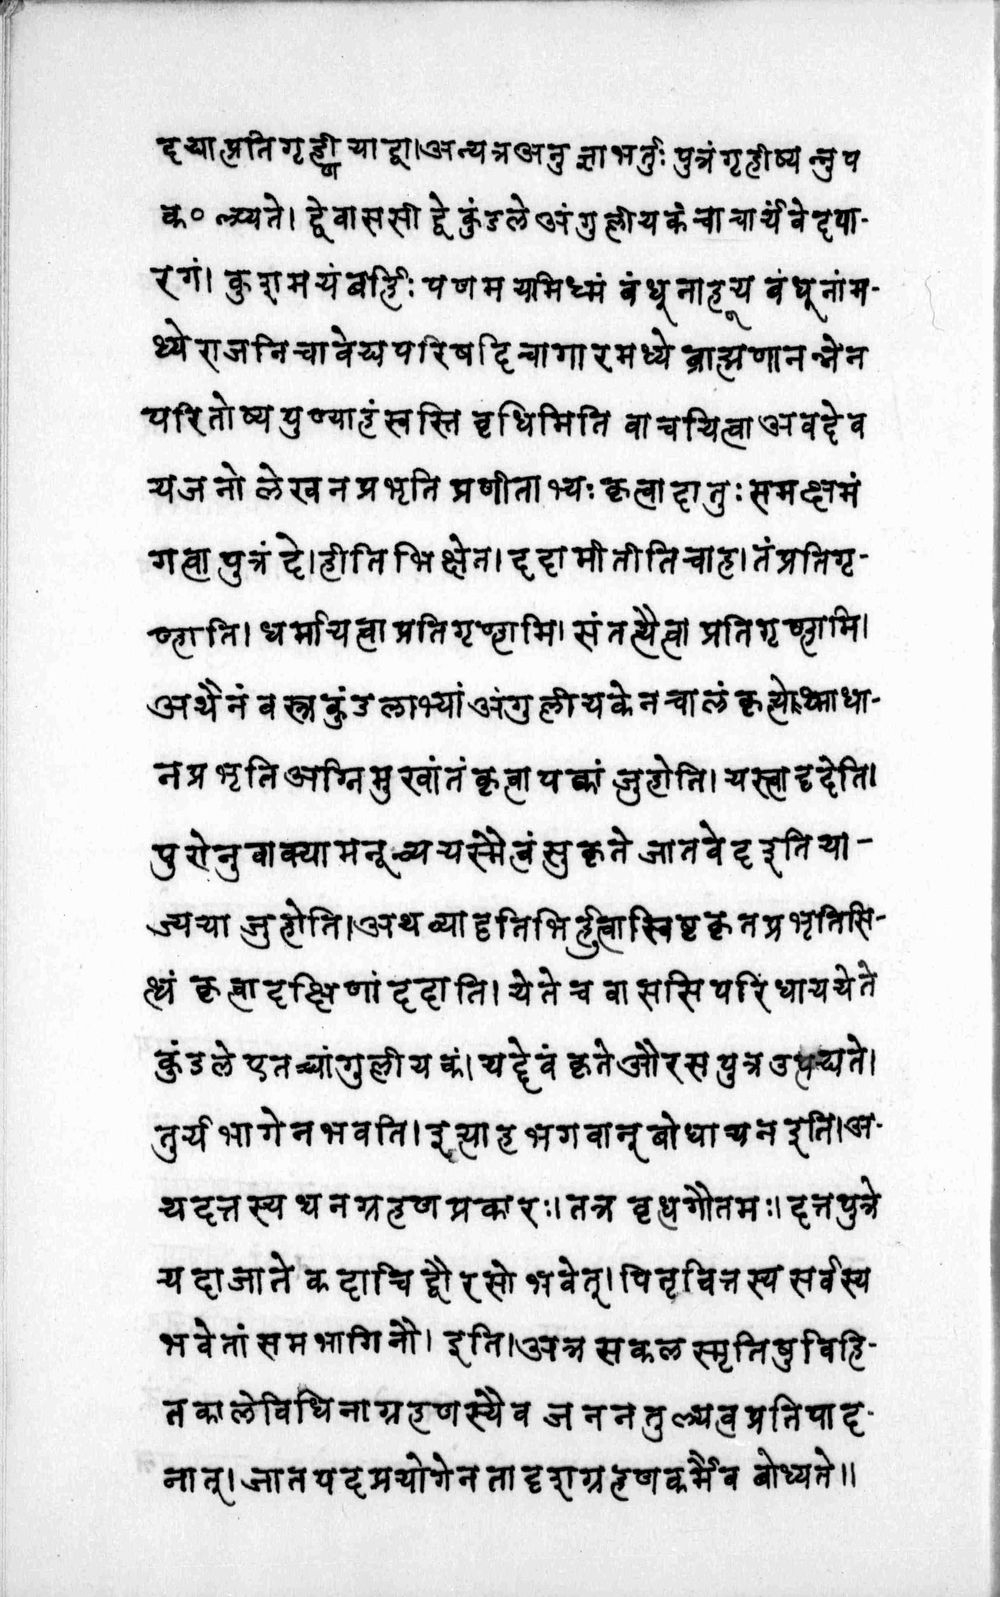 दद्यात्प्रतिगृह्णीयाद्वा।अन्यत्रअनुज्ञाभर्तुः पुत्रंगृहीष्यन्नुप
क॰ल्प्यते। द्वेवाससी द्वे कुंडले अंगुलीयकंचाचार्यंवेदपा-
रगं। कुशमयंबर्हिः पणमयमिध्मं बंधूनाहूय बंधूनांम-
ध्ये राजनिचावेद्यपरिषदिचागारमध्ये ब्राह्मणानन्नेन
परितोष्यपुण्याहंस्वस्ति वृधिमिति वाचयित्वाअवदेव
यजनोलेखनप्रभृति प्रणीताभ्यः कृत्वादातुः समक्षमं
गत्वापुत्रं दे।हीतिभिक्षेत।ददामीतीतिचाह।तंप्रतिगृ-
ष्णाति। धर्मायत्वाप्रतिगृष्णामि। संतत्यैत्वा प्रतिगृष्णामि।
अथैनं वस्त्रकुंडलाभ्यां अंगुलीयकेनचालंकृत्योथ्माधा-
नप्रभृतिअग्निमुखांतंकृत्वापक्वां जुहोति। यस्त्वाहृदेति।
पुरोनुवाक्यामनूच्ययस्मैत्वंसुकृतेजातवेदइतिया-
ज्यया जुहोति।अथव्याहृतिभिर्हुत्वास्विष्टकृतप्रभृतिसि-
त्धं कृत्वादक्षिणांददाति। येतेचवाससिपरिधाययेते
कुंडलेएतच्चांगुलीयकं।यद्देवंकृतेऔरसपुत्रउत्पद्यते।
तुर्यभागेनभवति।इत्याहभगवान्बोधायनइति।अ-
थदत्तस्यधनग्रहणप्रकारः।तत्र वृधगौतमः।दत्तपुत्रे
यदाजाते कदाचिद्वौरसोभवेत्।पितृवित्तस्यसर्वस्य
भवेतांसमभागिनौ। इति।अत्र सकलस्मृतिषुविहि-
तकालेविधिनाग्रहणस्यैव जननतुल्यत्वप्रतिपाद-
नात्।जातपदप्रयोगेनतादृशग्रहणकर्मैव बोध्यते॥